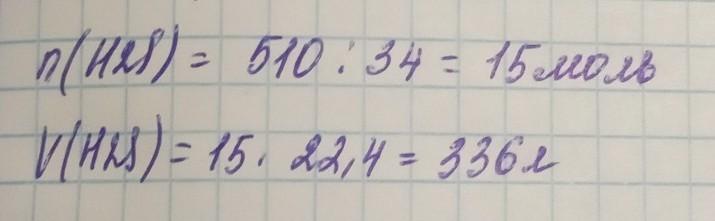 n(H2S) = 510 : 34 = 15 моль
V(H2S) = 15 · 22,4 = 336 л